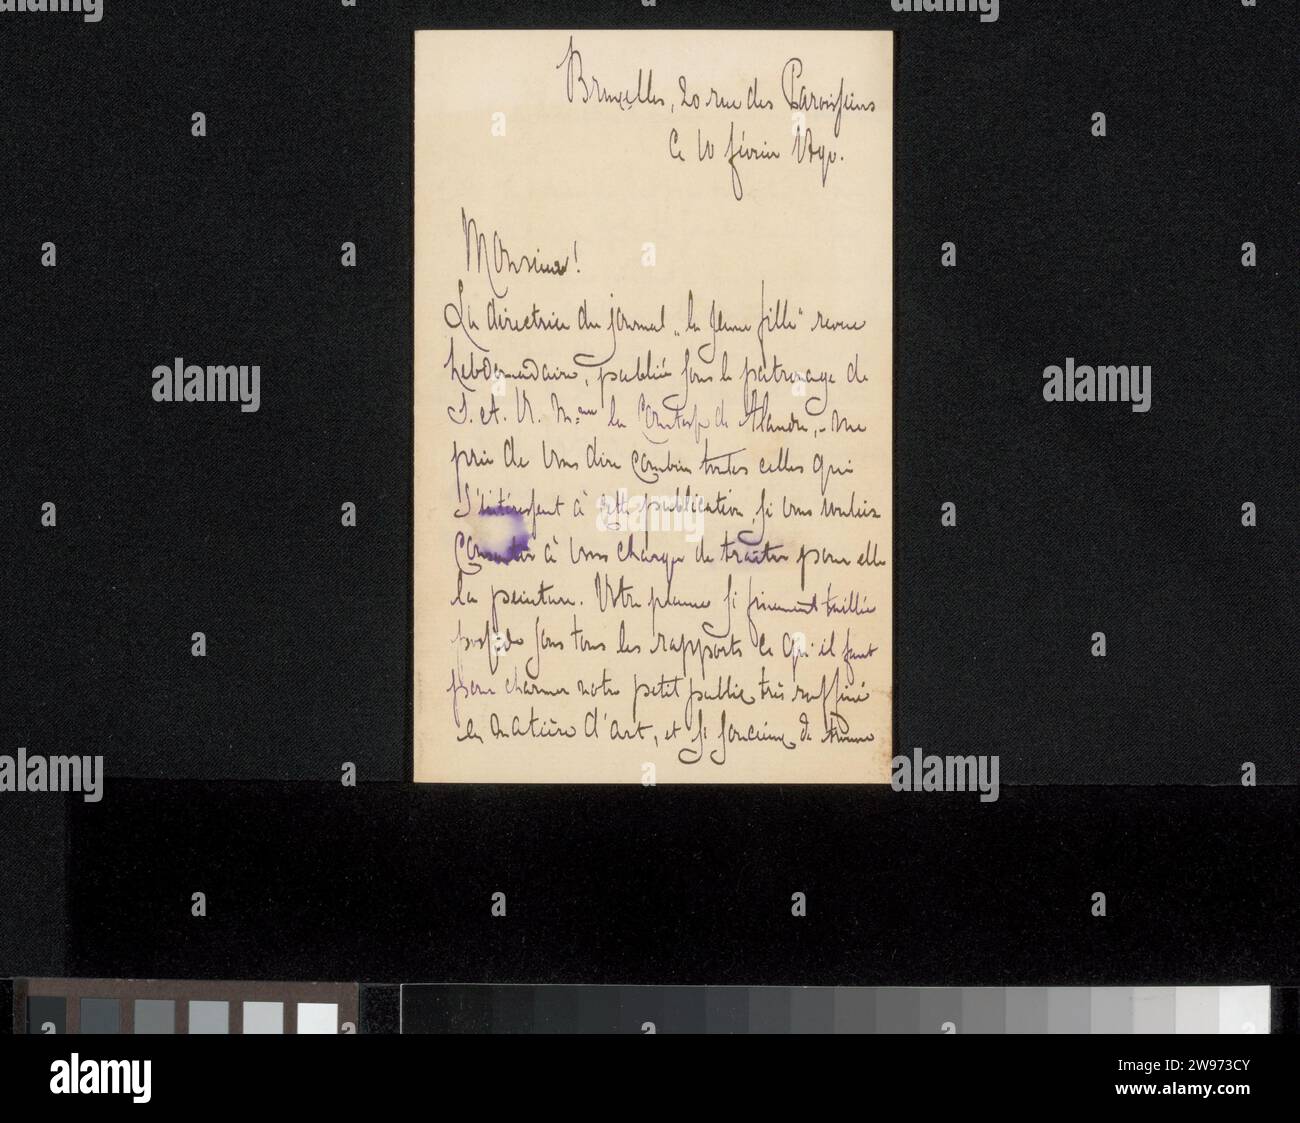 Bruxelles, 20 rue des Paroissiens
Ce 10 février 1890.
Monsieur!
La directrice du journal „la jeune fille" revue
hebdomadaire, publiée sous le patronage de
S. A. R. Mme la Comtesse de Flandre, me
prie de vous dire combien toutes celles qui
s'intéressent à cette publication, si vous vouliez
consentir à vous charger de traiter pour elle
la peinture. Votre plume si finement taillée
possède sous tous les rapports ce qu'il faut
pour charmer notre petit public très raffiné
en matière d'art, et si soucieux de
alamy
Image ID: 2W973CY
www.alamy.com